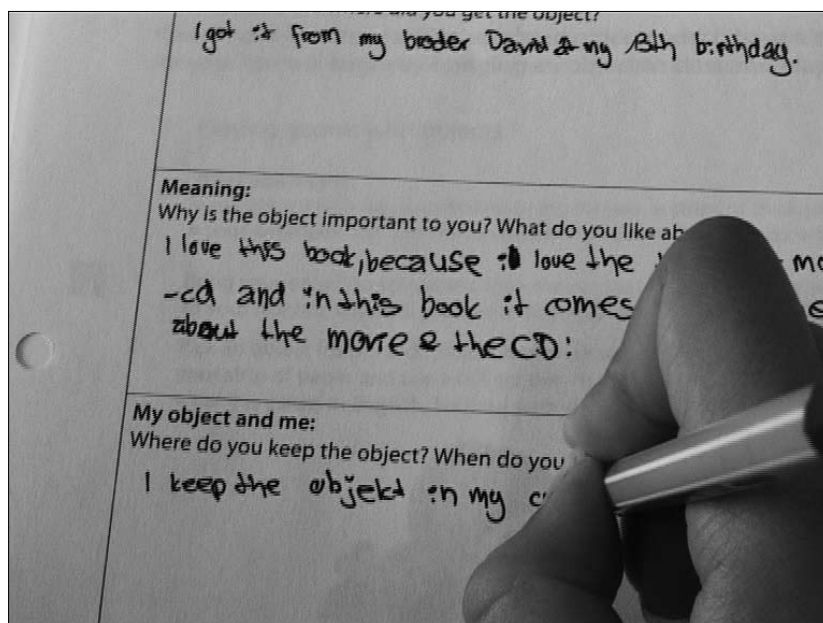 did you get the object?
I got it from my broder David my 13th birthday.
Meaning:
Why is the object important to you? What do you like
I love this book, because i love the
-cd and in this book it comes
about the movie & the CD:
My object and me:
Where do you keep the object? When do you
I keep the objekt in my